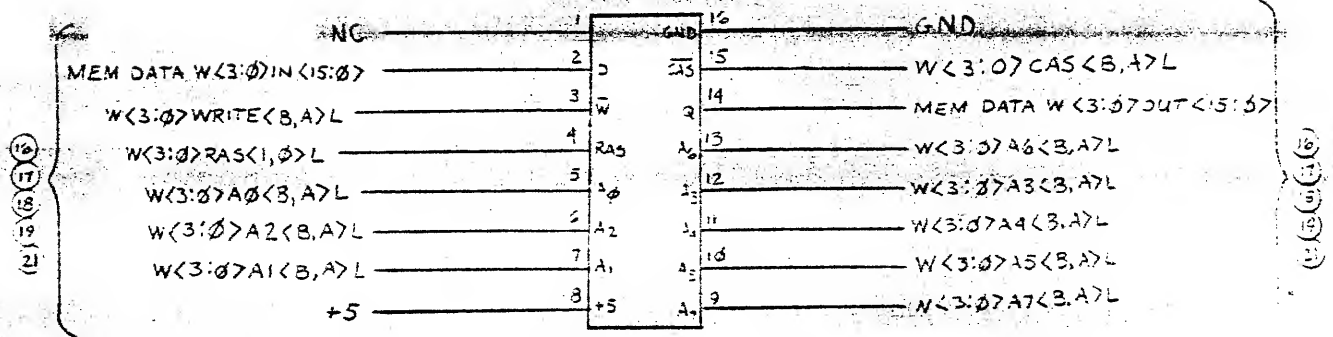 NC 1 GND 16 GND
MEM DATA W<3:Ø>IN<15:Ø> 2 D CAS 15 W<3:Ø>CAS<B,A>L
W<3:Ø>WRITE<B,A>L 3 W Q 14 MEM DATA W<3:Ø>OUT<15:Ø>
W<3:Ø>RAS<1,Ø>L 4 RAS A6 13 W<3:Ø>A6<B,A>L
W<3:Ø>AØ<B,A>L 5 AØ A3 12 W<3:Ø>A3<B,A>L
W<3:Ø>A2<B,A>L 6 A2 A4 11 W<3:Ø>A4<B,A>L
W<3:Ø>A1<B,A>L 7 A1 A5 1Ø W<3:Ø>A5<B,A>L
+5 8 +5 A7 9 W<3:Ø>A7<B,A>L
16
17
18
19
21